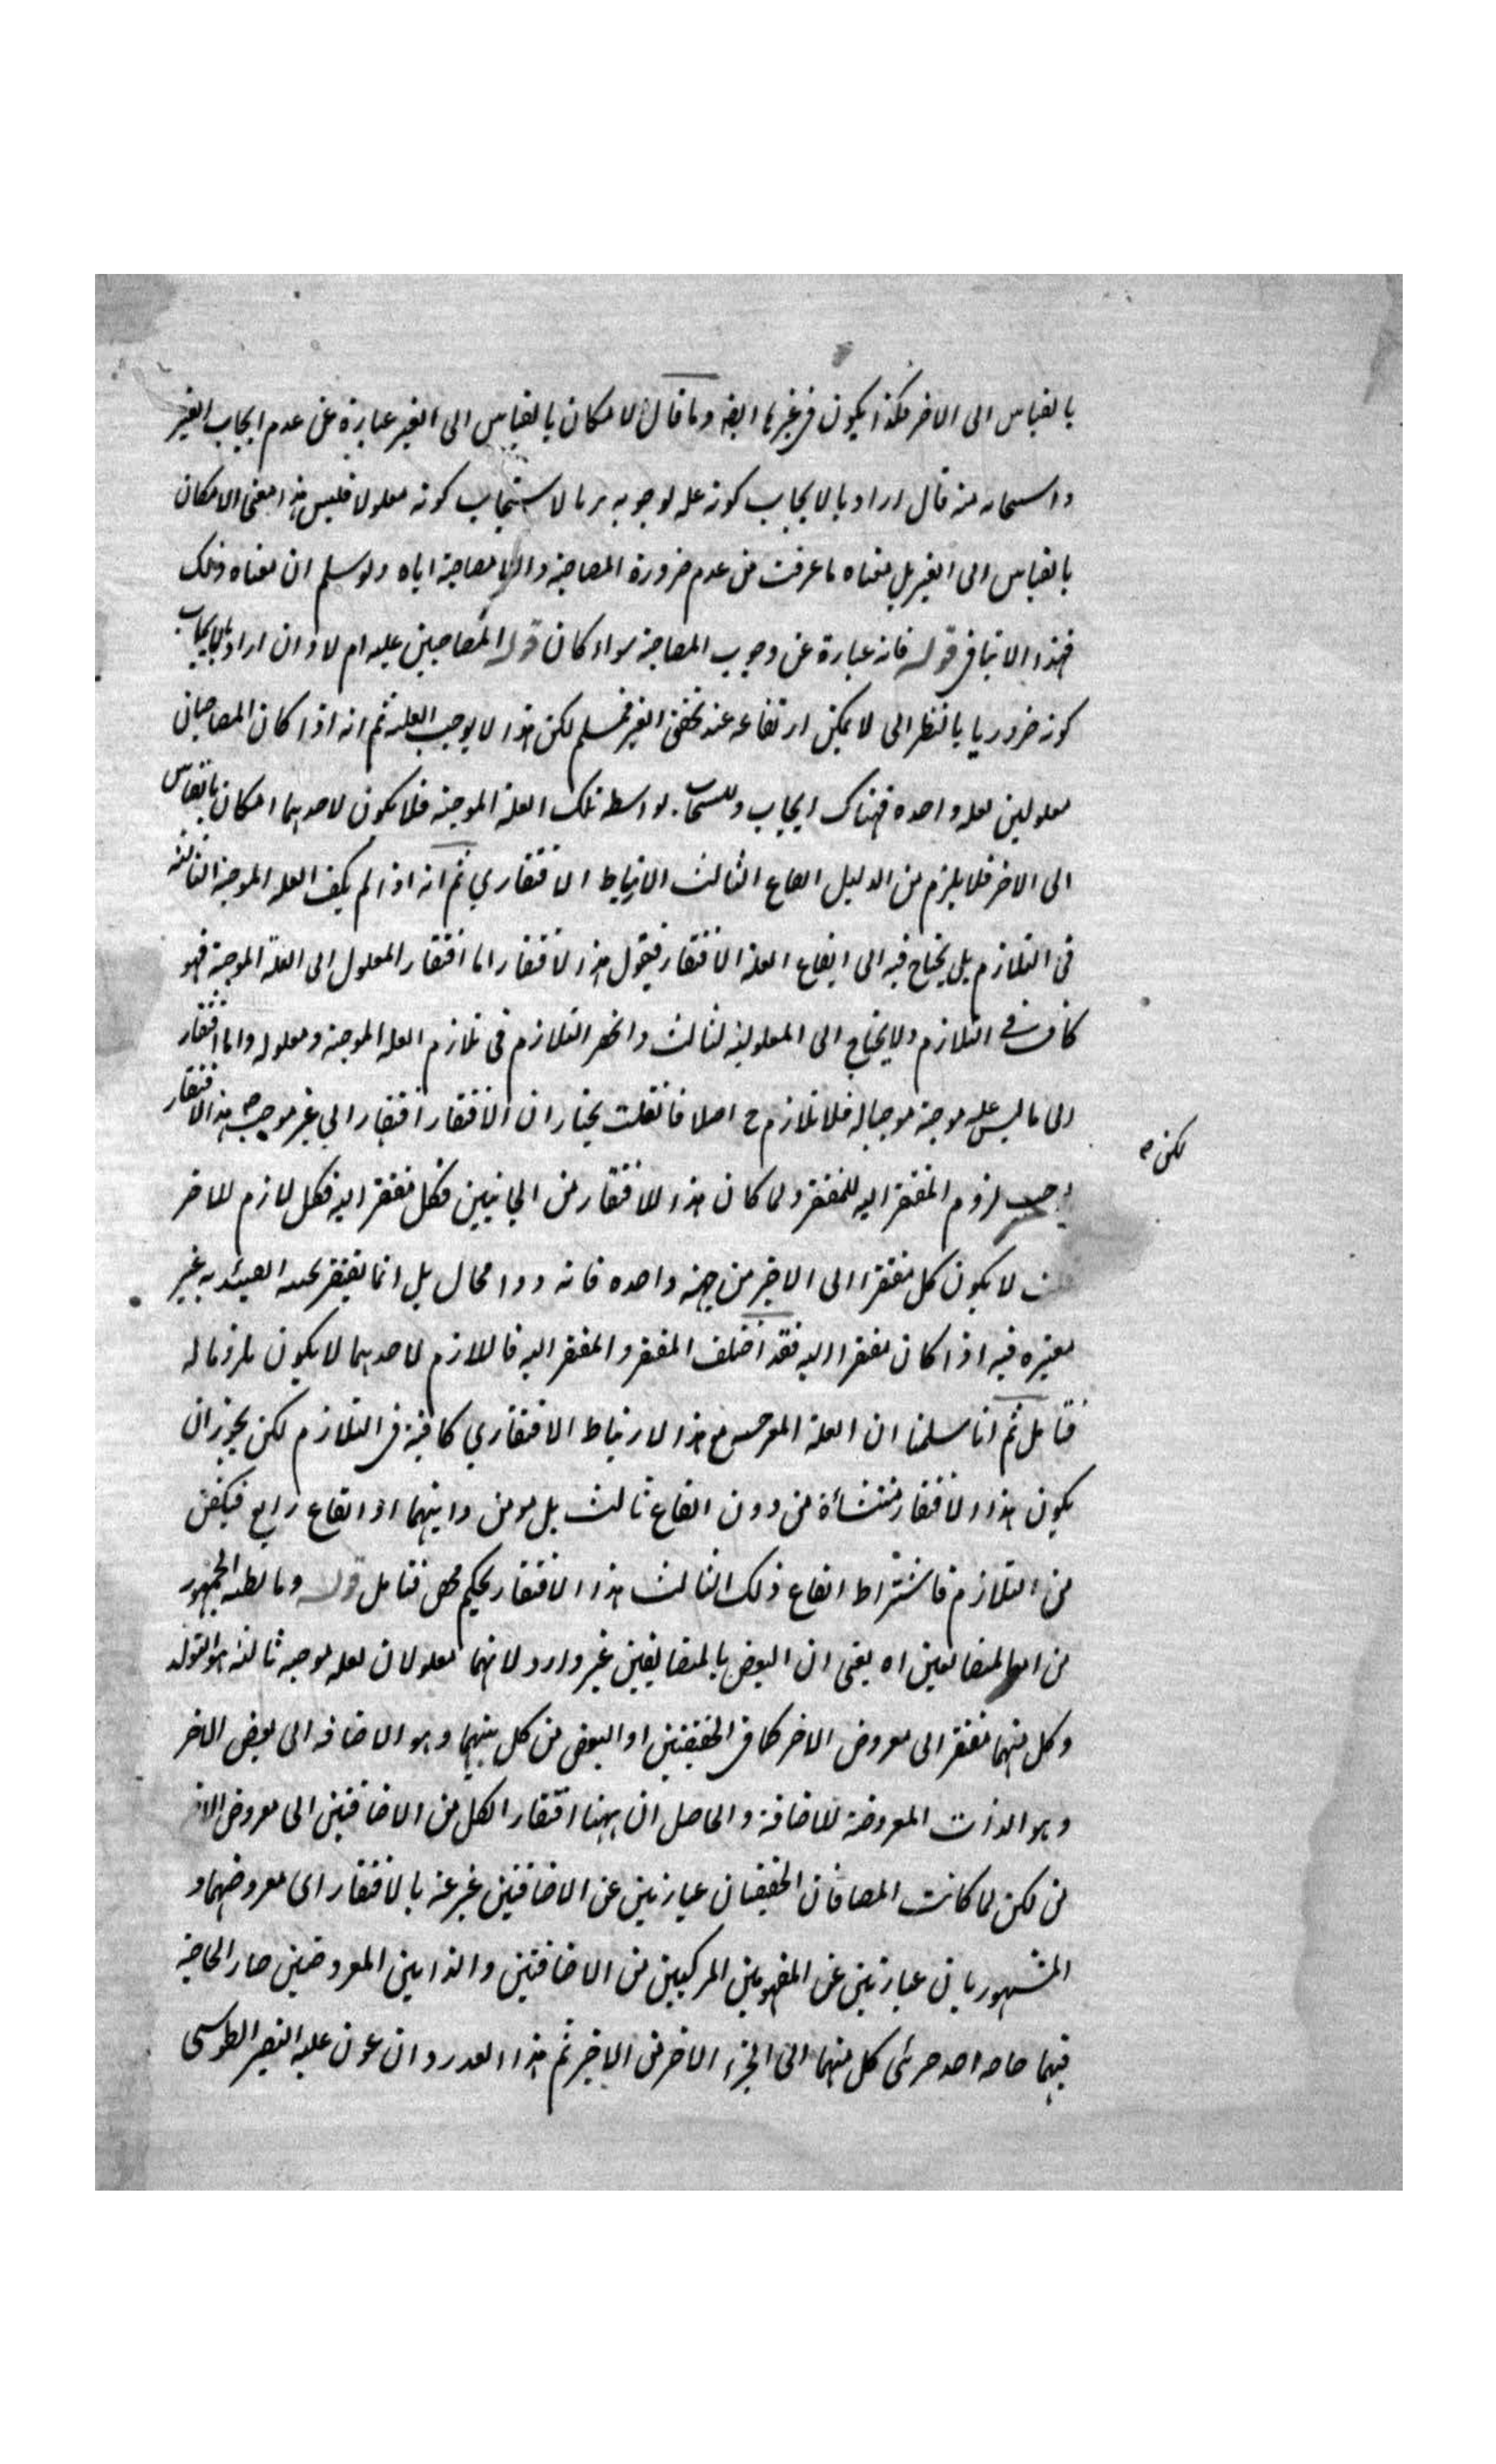 بالقياس الى الاخر هكذا يكون في غيرها ايضا وما قال الامكان بالقياس الى الغير عبارة عن عدم ايجاب الغير
واستجابه منه قال اراد بالايجاب كونه علة لوجوبه وبالاستيجاب كونه معلولا فليس هذا معنى الامكان
بالقياس الى الغير بل معناه ما عرفت من عدم ضرورة المصاحبة واللامصاحبة اياه ولو سلم ان معناه ذلك
فهذا لا ينافي قوله فانه عبارة عن وجوب المصاحبة سواء كان المصاحبين علية ام لا وان اراد بالايجاب
كونه ضروريا بالنظر الى لا يمكن ارتفاعه عند تحقق الغير فمسلم لكن هذا لا يوجب العلية ثم انه اذا كان المصاحبان
معلولين لعلة واحدة فهناك ايجاب واستيجاب بواسطة تلك العلة الموجبة فلا يكون لاحدهما امكان بالقياس
الى الاخر فلا يلزم من الدليل ايقاع الثالث الارتباط الافتقاري ثم انه اذا لم يكف العلة الموجبة الثالثة
في التلازم بل يحتاج فيه الى ايقاع العلة الافتقار فيقول هذا الافتقار اما افتقار المعلول الى العلة الموجبة فهو
كاف في التلازم ولا يحتاج الى المعلولية لثالث وانحصر التلازم في تلازم العلة الموجبة ومعلوله واما افتقار
الى ما ليس علة موجبة موجبا له فلا تلازم ح اصلا فان قلت نختار ان الافتقار افتقار الى غير موجبه هذا الافتقار
لكن
لزوم المفتقر اليه للمفتقر ولما كان هذا الافتقار من الجانبين فكل مفتقر اليه فكل لازم للاخر
قلت لا يكون كل مفتقرا الى الاخر من جهة واحدة فانه دور محال بل انما يفتقر
فيه اذا كان مفتقرا اليه فقد اختلف المفتقر والمفتقر اليه فاللازم لاحدهما لا يكون ملزوما له
فتامل ثم انا سلمنا ان العلة الموجبة مع هذا الارتباط الافتقاري كافية في التلازم لكن يجوز ان
يكون هذا الافتقار منتشأة من دون ايقاع ثالث بل هو من ذاتيهما او ايقاع رابع فيكفي
من التلازم فاشتراط ايقاع ذلك الثالث هذا الافتقار تحكم محض فتامل قوله وما يظنه الجمهور
من ان المتضايفين اه يعني ان النقض بالمتضايفين غير وارد لانهما معلولان لعلة موجبة ثالثة هو التولد
وكل منهما مفتقر الى معروض الاخر كما في الحقيقيين او البعض من كل منهما وهو الاضافة الى بعض الاخر
وهو الذات المعروضة للاضافة والحاصل ان ههنا افتقار الكل من الاضافتين الى معروض الاخر
من لكن لما كانت المضافان الحقيقيان عبارتين عن الاضافتين عبر عنه بالافتقار الى معروضهما و
المشهوريان عبارتين عن المفهومين المركبين من الاضافتين والذاتين المعروضتين صار الحاجة
فيهما حاجة احد جزئي كل منهما الى الجزء الاخر من الاخر ثم هذا القدر وان عون عليه النصير الطوسي